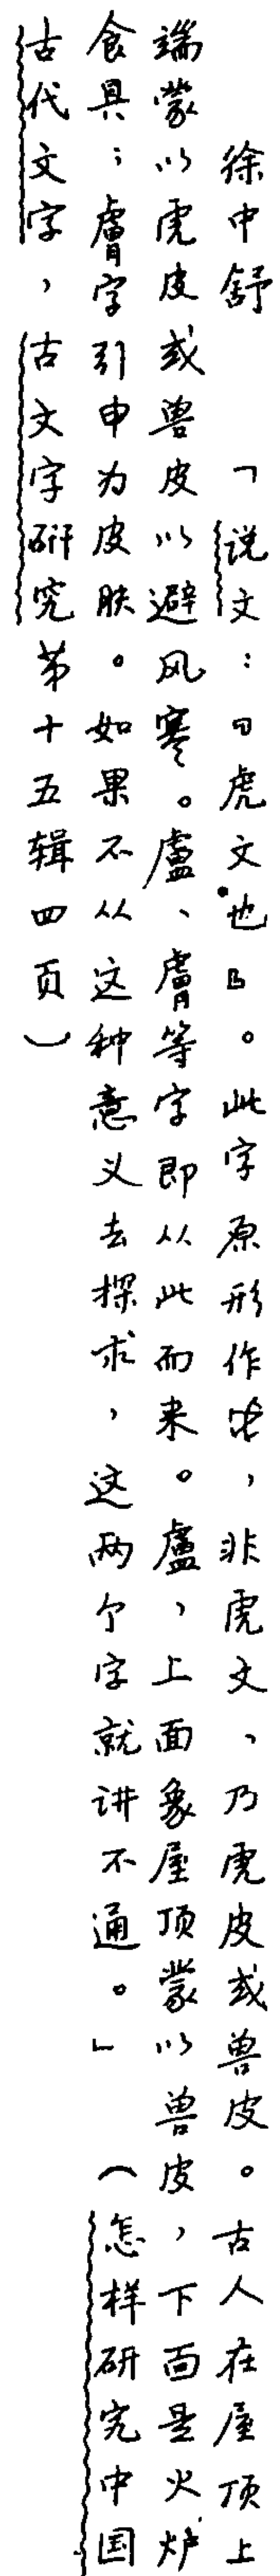 徐中舒　「说文：『虎文也』。此字原形作，非虎文，乃虎皮或兽皮。古人在屋顶上
端蒙以虎皮或兽皮以避风寒。盧、膚等字即从此而来。盧，上面象屋顶蒙以兽皮，下面是火炉
食具；膚字引申为皮肤。如果不从这种意义去探求，这两个字就讲不通。」（怎样研究中国
古代文字，古文字研究第十五辑四页）